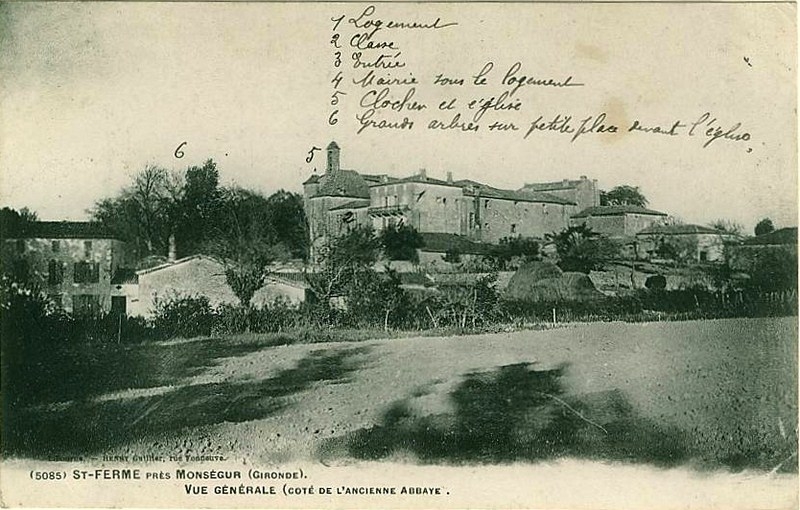 1 Logement
2 Classe
3 Entrée
4 Mairie sous le logement
5 Clocher et église
6 Grands arbres sur petite place devant l'église
6
5
HENRY Guillier, rue Fonneuve.
(5085) ST-FERME PRÈS MONSÉGUR (GIRONDE).
VUE GÉNÉRALE (COTÉ DE L'ANCIENNE ABBAYE.